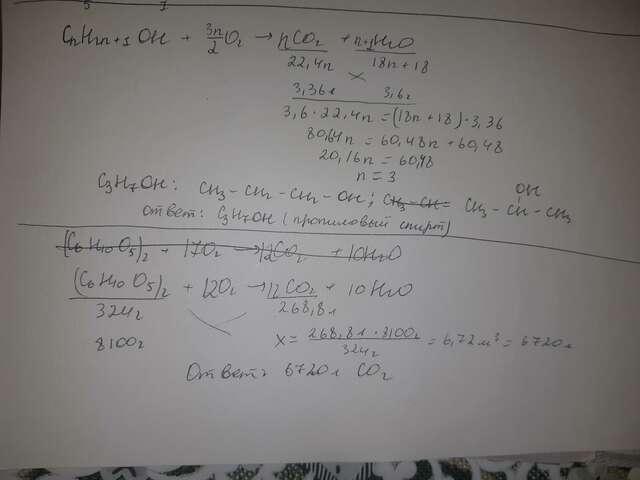 5 7
CnH2n+1 OH + 3n/2 O2 → nCO2 + n+1H2O
22,4n 18n+18
3,36л 3,6г
3,6·22,4n = (18n+18)·3,36
80,64n = 60,48n + 60,48
20,16n = 60,48
n = 3
C3H7OH: CH3-CH2-CH2-OH; CH3-CH= CH3-CH-CH3
OH
Ответ: C3H7OH (пропиловый спирт)
(C6H10O5)2 + 17O2 → 12CO2 + 10H2O
(C6H10O5)2 + 12O2 → 12CO2 + 10H2O
324г 268,8л
8100г x = 268,8л·8100г/324г = 6,72м³ = 6720л
Ответ: 6720л CO2